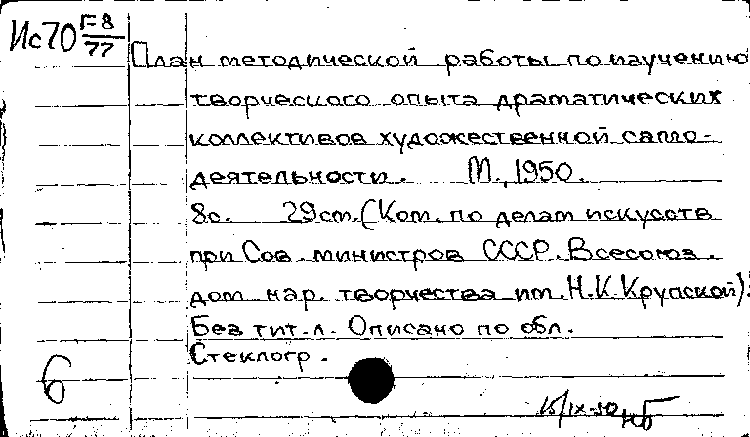 Ис70 Г-8/77
План методической работы по изучению
творческого опыта драматических
коллективов художественной само-
деятельности. М., 1950.
8с. 29см. (Ком. по делам искусств
при Сов. министров СССР. Всесоюз.
дом нар. творчества им. Н.К.Крупской).
Без тит.л. Описано по обл.
Стеклогр.
6
15/IX-50 нб